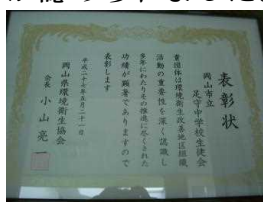 表彰状
岡山市立
足守中学校生徒会
貴団体は環境衛生改善地区組織
活動の重要性を深く認識し
多年にわたりその推進に尽くされた
功績が顕著でありますので
表彰します
平成二十六年五月二十一日
岡山県環境衛生協会
会長 小山亮一